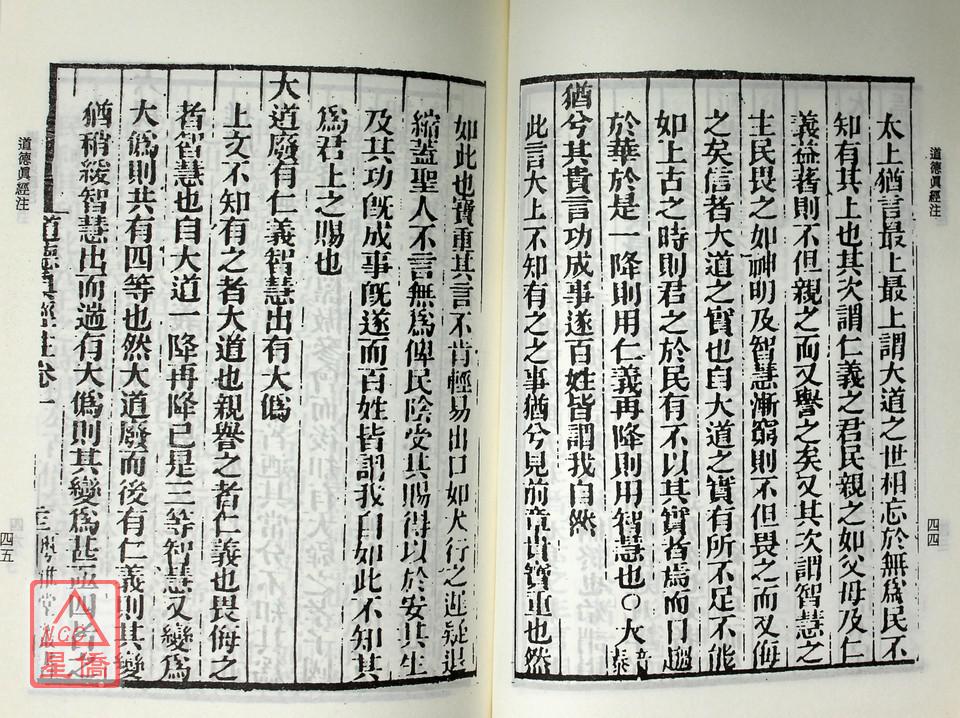 道德眞經注
四四
太上猶言最上最上謂大道之世相忘於無爲民不
知有其上也其次謂仁義之君民親之如父母及仁
義益著則不但親之而又譽之矣又其次謂智慧之
主民畏之如神明及智慧漸窮則不但畏之而又侮
之矣信者大道之實也自大道之實有所不足不能
如上古之時則君之於民有不以其實者焉而日趨
於華於是一降則用仁義再降則用智慧也○大音泰
猶兮其貴言功成事遂百姓皆謂我自然
此言大上不知有之之事猶兮見前章貴寶重也然
如此也寶重其言不肯輕易出口如犬行之遲疑退
縮蓋聖人不言無爲俾民陰受其賜得以於安其生
及其功旣成事旣遂而百姓皆謂我自如此不知其
爲君上之賜也
大道廢有仁義智慧出有大僞
上文不知有之者大道也親譽之者仁義也畏侮之
者智慧也自大道一降再降已是三等智慧又變爲
大僞則共有四等也然大道廢而後有仁義則其變
猶稍緩智慧出而遄有大僞則其變爲甚亟四者之
道德眞經注卷一
道德眞經注
四五
NCC
星僑